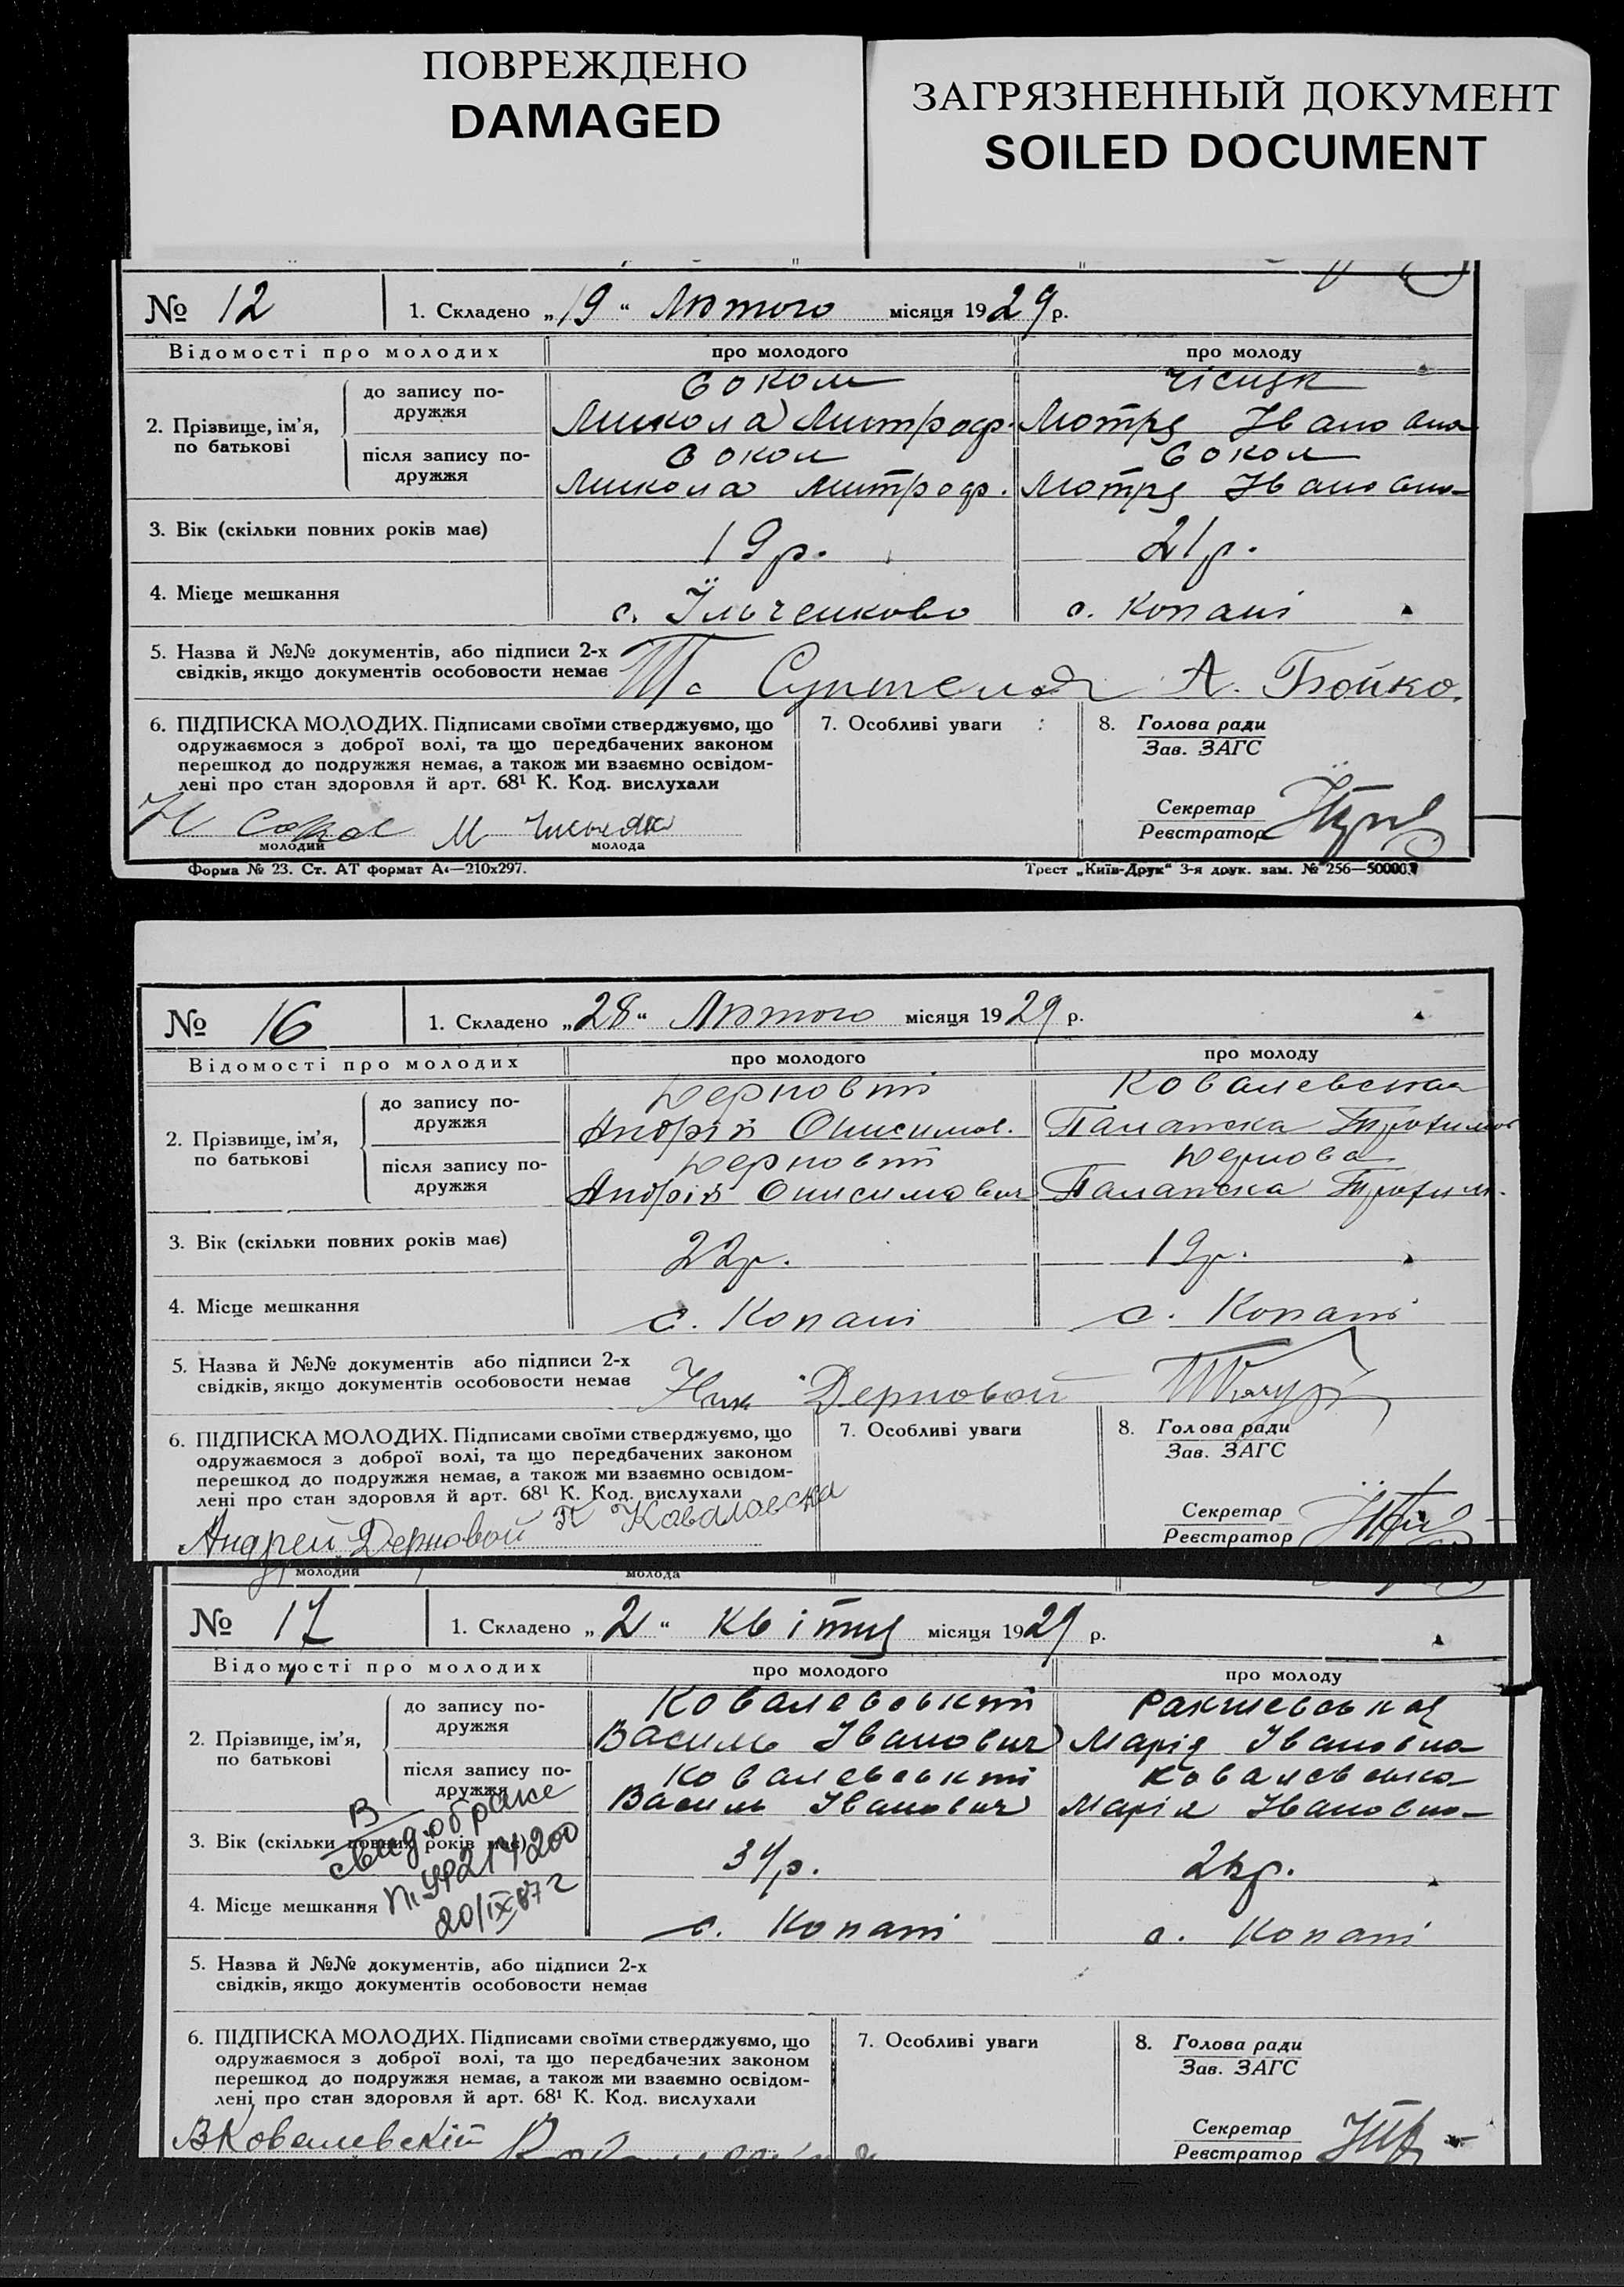 ПОВРЕЖДЕНО
DAMAGED
ЗАГРЯЗНЕННЫЙ ДОКУМЕНТ
SOILED DOCUMENT
№ 12 1. Складено „19“ Лютого місяця 1929 р.
Відомості про молодих про молодого про молоду
2. Прізвище, ім'я, по батькові
до запису подружжя
Сокол
Микола Митроф. Мотря Івановна
після запису подружжя
Сокол Сокол
Микола Митроф. Мотря Івановна
3. Вік (скільки повних років має) 19 р. 21 р.
4. Місце мешкання с. Їльченково с. Копані
5. Назва й №№ документів, або підписи 2-х
свідків, якщо документів особовости немає А. Бойко.
6. ПІДПИСКА МОЛОДИХ. Підписами своїми стверджуємо, що
одружаємося з доброї волі, та що передбачених законом
перешкод до подружжя немає, а також ми взаємно освідом-
лені про стан здоровля й арт. 68¹ К. Код. вислухали
Н Сокол М
молодий молода
7. Особливі уваги
8. Голова ради
Зав. ЗАГС
Секретар
Реєстратор
Форма № 23. Ст. АТ формат А4—210х297. Трест „Київ-Друк“ 3-я друк. зам. № 256—500003
№ 16 1. Складено „28“ Лютого місяця 1929 р.
Відомості про молодих про молодого про молоду
2. Прізвище, ім'я,
по батькові
до запису по-
дружжя
Дерновий Ковалевская
Андрій Онисимов. Палажка Трохимов
після запису по-
дружжя
Дерновий Дернова
Андрій Онисимович Палажка Трохим.
3. Вік (скільки повних років має) 22 р. 19 р.
4. Місце мешкання с. Копани с. Копани
5. Назва й №№ документів або підписи 2-х
свідків, якщо документів особовости немає Ник Дерновой
6. ПІДПИСКА МОЛОДИХ. Підписами своїми стверджуємо, що
одружаємося з доброї волі, та що передбачених законом
перешкод до подружжя немає, а також ми взаємно освідом-
лені про стан здоровля й арт. 68¹ К. Код. вислухали
Андрей Дерновой П Коваловска
молодий молода
7. Особливі уваги
8. Голова ради
Зав. ЗАГС
Секретар
Реєстратор
№ 17 1. Складено „2“ Квітня місяця 1929 р.
Відомості про молодих про молодого про молоду
2. Прізвище, ім'я,
по батькові
до запису по-
дружжя
Ковалевський
Василь Іванович Марія Івановна
після запису по-
дружжя
Ковалевський Ковалевська
Василь Іванович Марія Івановна
3. Вік (скільки повних років має) р. р.
В
свид. о браке
20/IX 87 г
4. Місце мешкання с. Копані с. Копані
5. Назва й №№ документів, або підписи 2-х
свідків, якщо документів особовости немає
6. ПІДПИСКА МОЛОДИХ. Підписами своїми стверджуємо, що
одружаємося з доброї волі, та що передбачених законом
перешкод до подружжя немає, а також ми взаємно освідом-
лені про стан здоровля й арт. 68¹ К. Код. вислухали
ВКовалевскій
7. Особливі уваги
8. Голова ради
Зав. ЗАГС
Секретар
Реєстратор